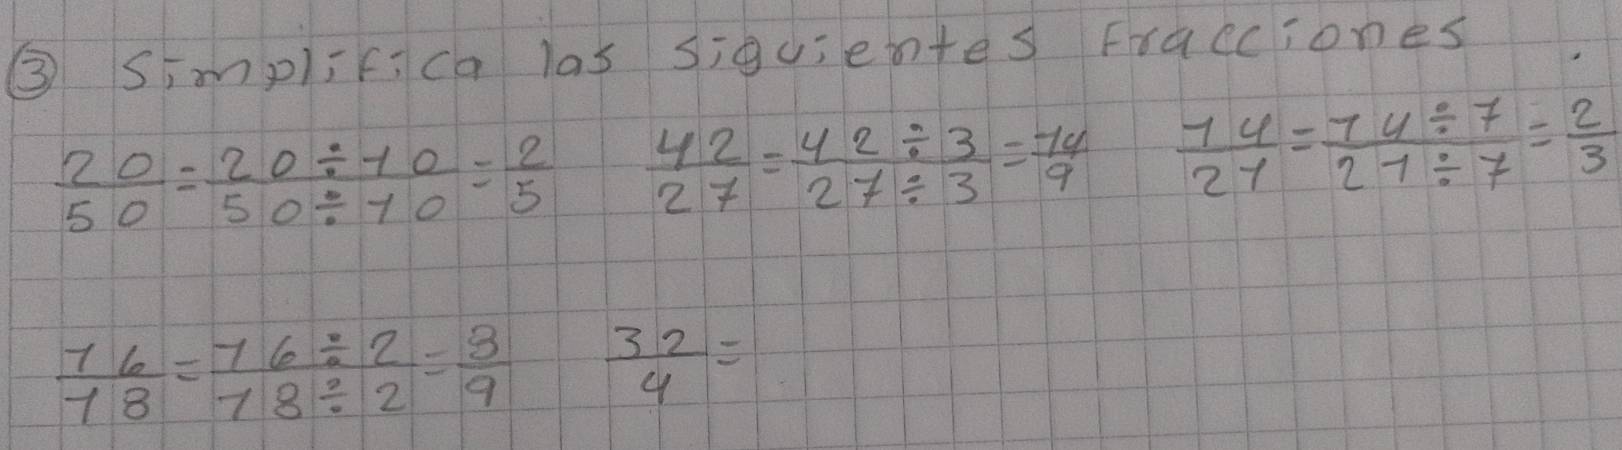 ③ Simplifica las siguientes fracciones.
20/50 = 20÷10/50÷10 = 2/5 42/27 = 42÷3/27÷3 = 14/9 14/21 = 14÷7/21÷7 = 2/3
16/18 = 16÷2/18÷2 = 8/9 32/4 =